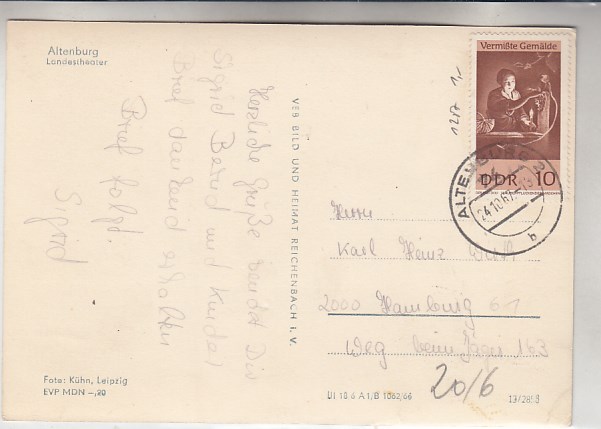 Altenburg
Landestheater
Herzliche Grüße sendet Dir
Sigrid Bernd und Kinder
Brief dankend erhalten
Brief folgt.
Sigrid
VEB BILD UND HEIMAT REICHENBACH I. V.
Vermißte Gemälde
DDR 10
ALTENBURG 2
24.10.67
b
1217 1,-
Herrn
Karl Heinz
2000 Hamburg 61
Weg beim Jäger 163
20/6
Foto: Kühn, Leipzig
EVP MDN –,20
III 18 6 A 1, B 1062/66